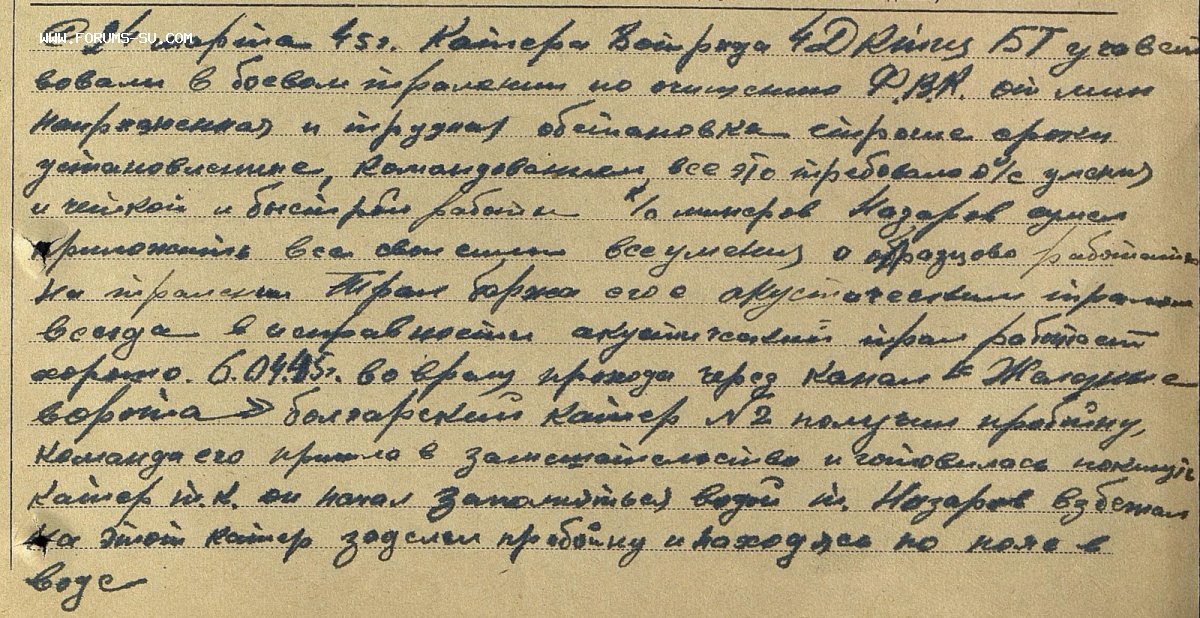 WWW.FORUMS-SU.COM
марта 45г. Катера отряда 4Д БТ участ
вовали в боевом тралении по очищению Ф.В.К. от мин
напряженная и трудная обстановка строгие сроки
установленные, командованием, все это требовало умения
и четкой и быстрой работы минеров Назаров сумел
приложить все свои силы все умения о образцово работать
на тралении Трал баржа его с акустическим тралом
всегда в исправности акустический трал работает
хорошо. 6.04.45г. во время прохода через канал "Железные
ворота" болгарский катер №2 получил пробоину,
команда его пришла в замешательство и готовилась покинуть
катер т.к. он начал заполняться водой т. Назаров взбежал
на этот катер заделал пробоину и находясь по пояс в
воде